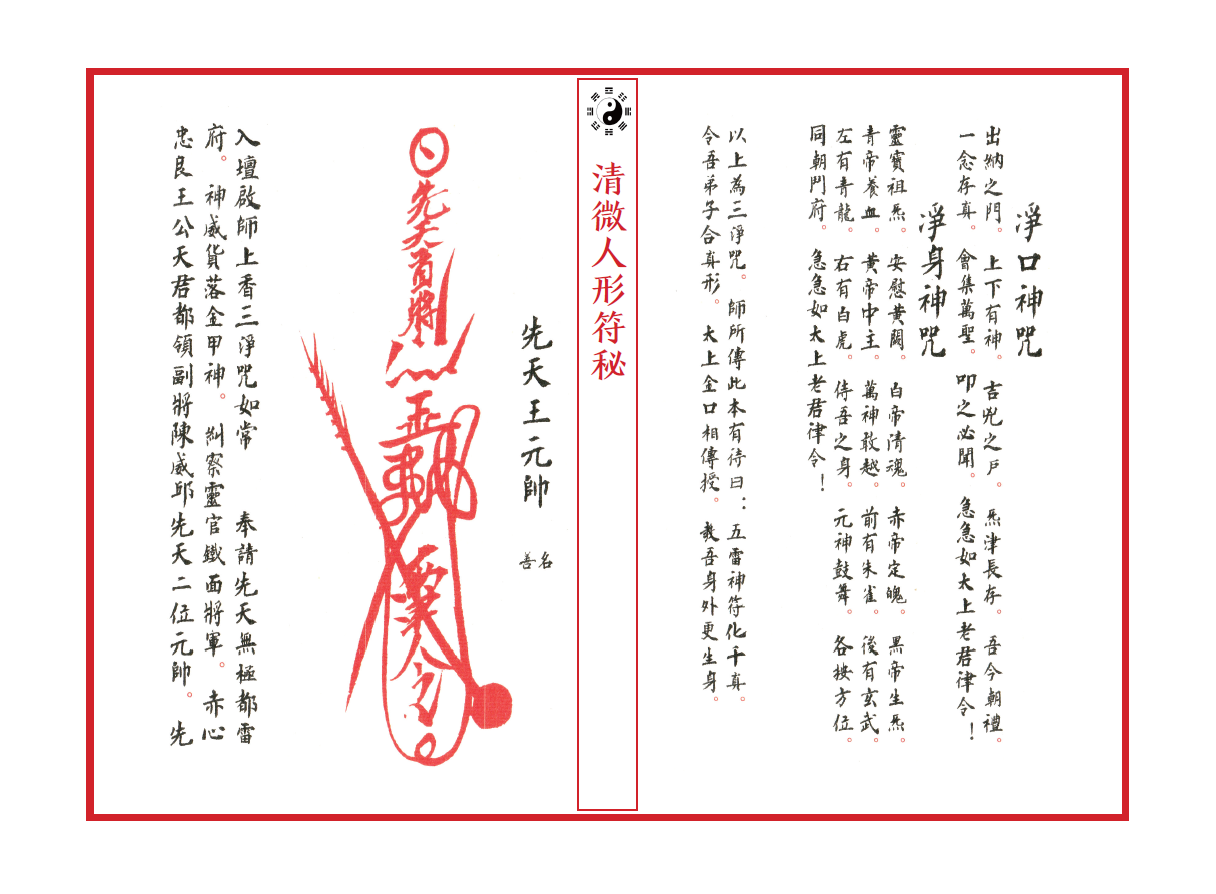 淨口神咒
出納之門。上下有神。吉兇之戶。炁津長存。吾今朝禮。
一念存真。會集萬聖。叩之必聞。急急如太上老君律令！
淨身神咒
靈寶祖炁。安慰黃闕。白帝清魂。赤帝定魄。黑帝生炁。
青帝養血。黃帝中主。萬神敢越。前有朱雀。後有玄武。
左有青龍。右有白虎。侍吾之身。元神鼓舞。各按方位。
同朝鬥府。急急如太上老君律令！
以上為三淨咒。師所傳此本有待曰：五雷神符化千真。
令吾弟子合真形。太上金口相傳授。教吾身外更生身。
清微人形符秘
先天王元帥
名善
先天首將
令
入壇啟師上香三淨咒如常 奉請先天無極都雷
府。神威貨落金甲神。糾察靈官鐵面將軍。赤心
忠良王公天君都領副將陳威邱先天二位元帥。先